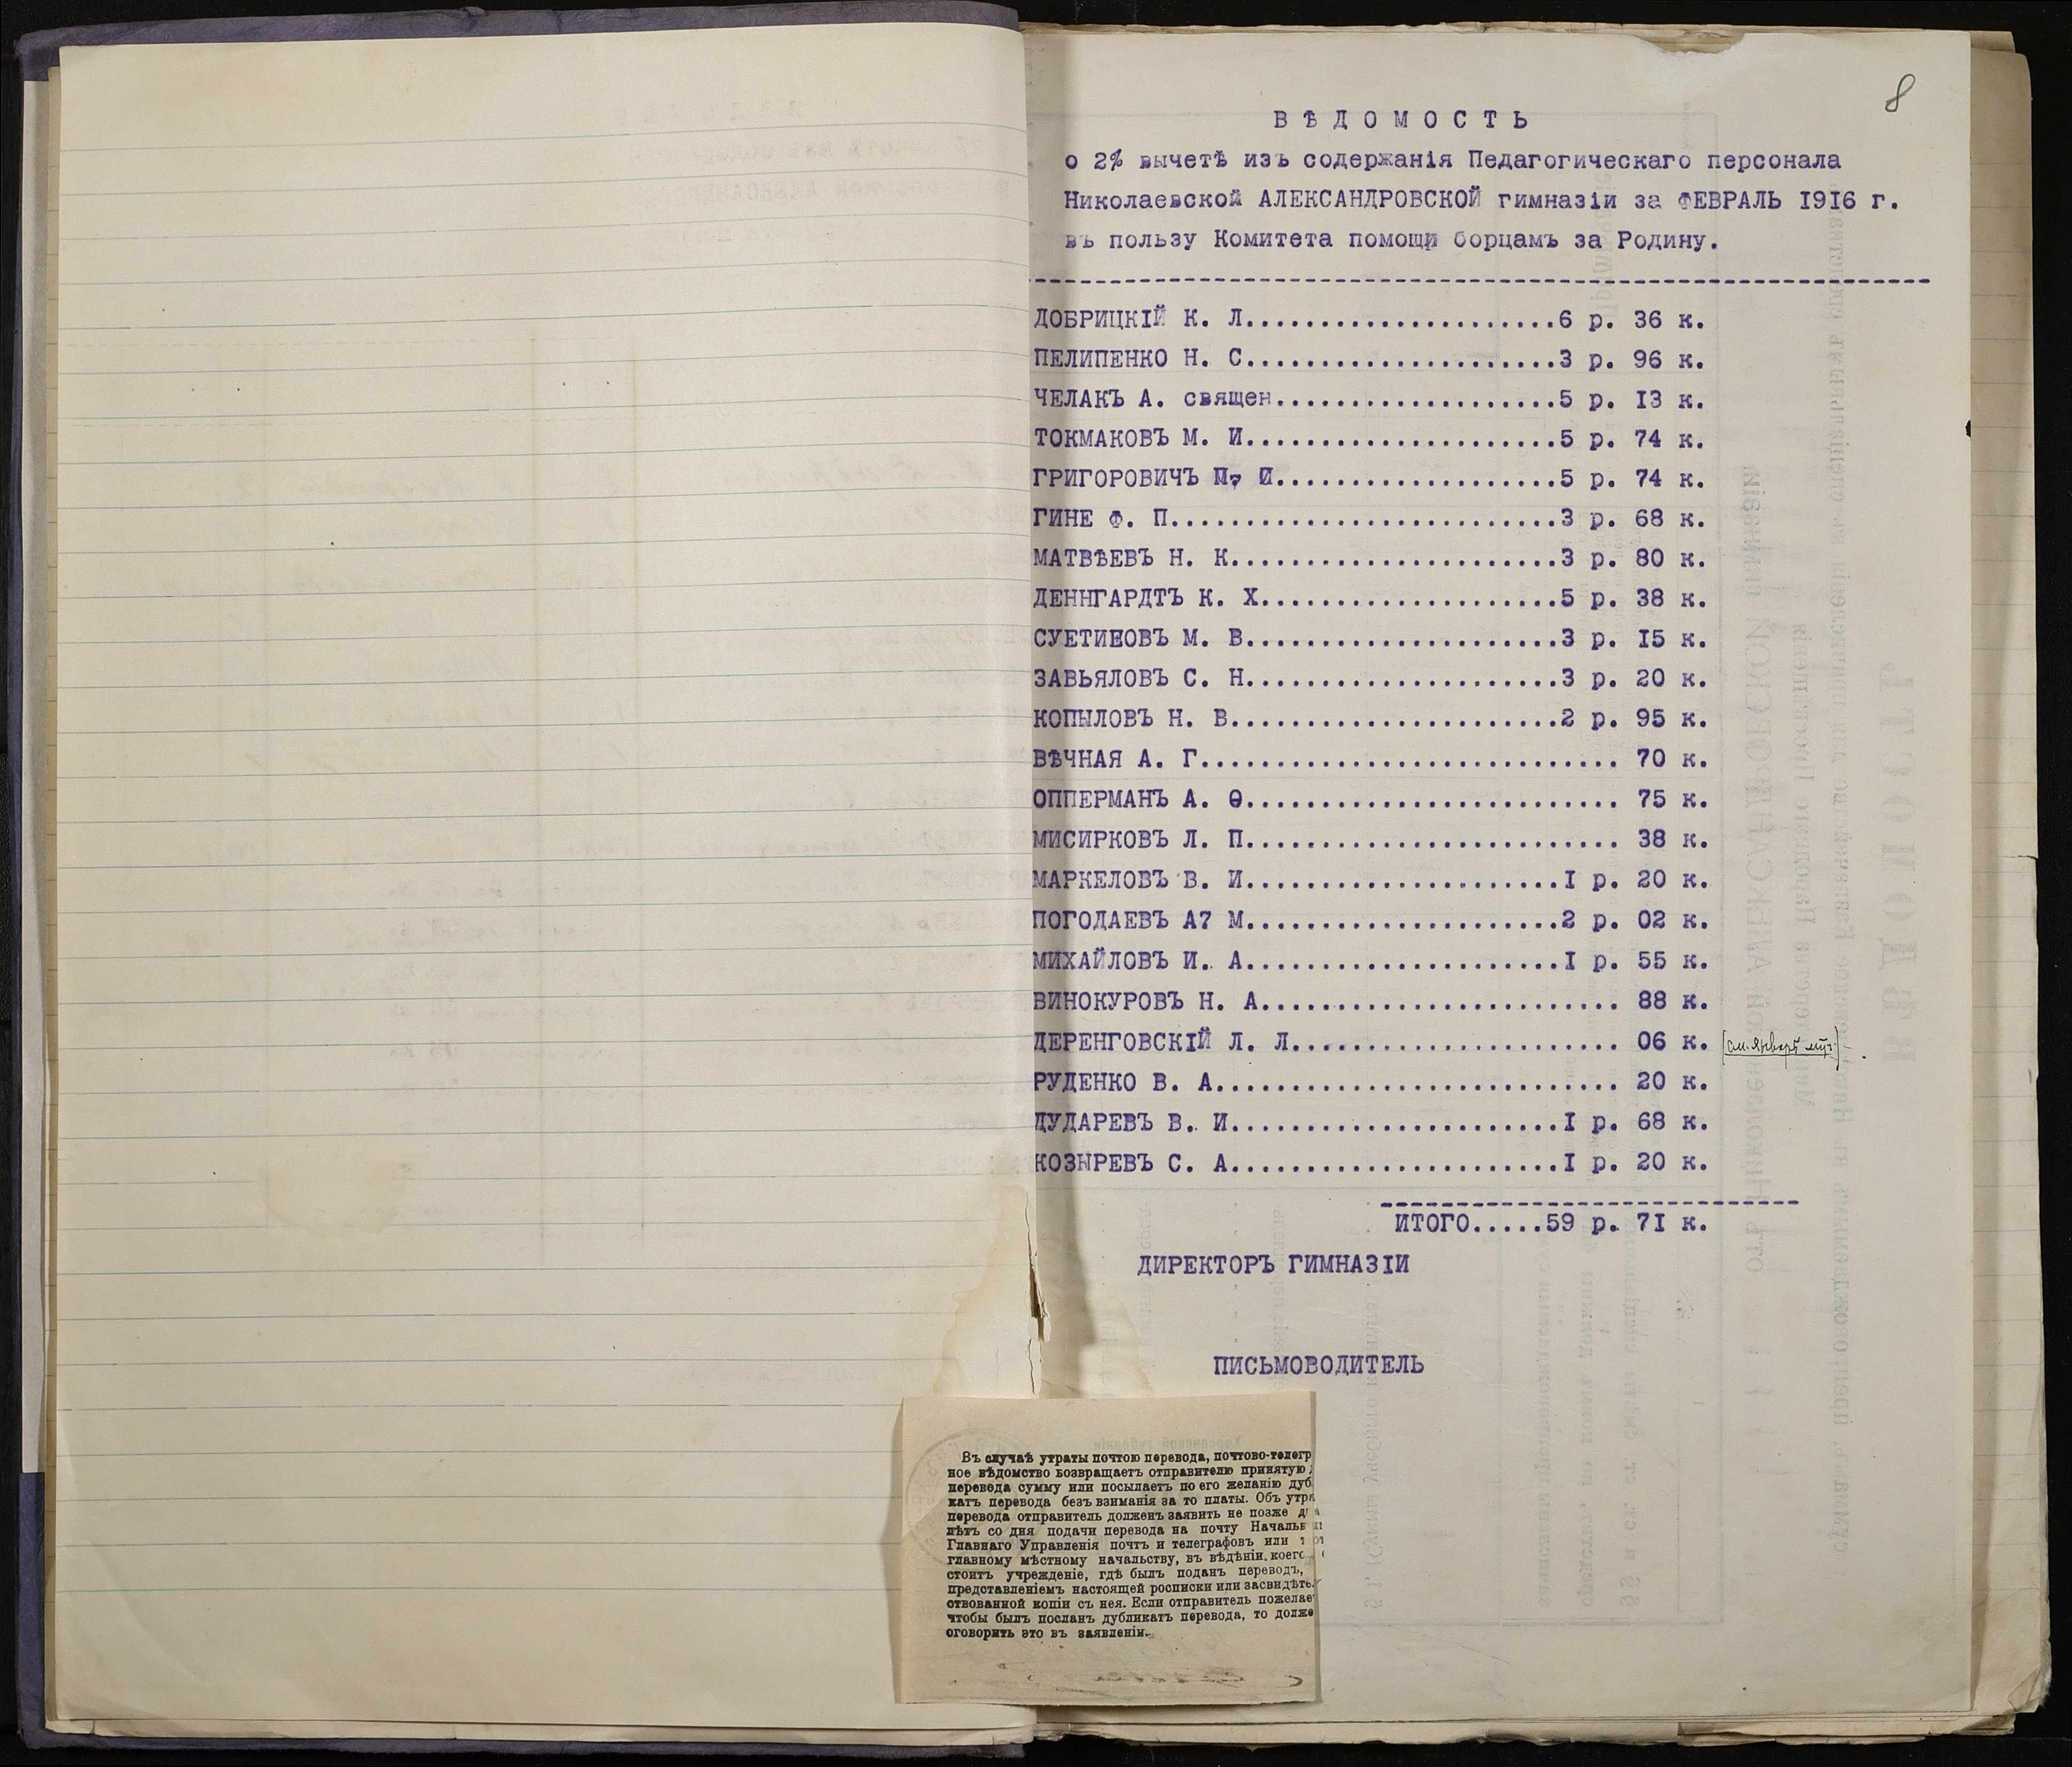 8
ВѢДОМОСТЬ
о 2% вычетѣ изъ содержанія Педагогическаго персонала
Николаевской АЛЕКСАНДРОВСКОЙ гимназіи за ФЕВРАЛЬ 1916 г.
въ пользу Комитета помощи борцамъ за Родину.
ДОБРИЦКІЙ К. Л.....................6 р. 36 к.
ПЕЛИПЕНКО Н. С.....................3 р. 96 к.
ЧЕЛАКЪ А. священ...................5 р. 13 к.
ТОКМАКОВЪ М. И.....................5 р. 74 к.
ГРИГОРОВИЧЪ П, И...................5 р. 74 к.
ГИНЕ Ф. П..........................3 р. 68 к.
МАТВѢЕВЪ Н. К......................3 р. 80 к.
ДЕННГАРДТЪ К. Х....................5 р. 38 к.
СУЕТИНОВЪ М. В.....................3 р. 15 к.
ЗАВЬЯЛОВЪ С. Н.....................3 р. 20 к.
КОПЫЛОВЪ Н. В......................2 р. 95 к.
ВѢЧНАЯ А. Г............................ 70 к.
ОППЕРМАНЪ А. Ѳ......................... 75 к.
МИСИРКОВЪ Л. П......................... 38 к.
МАРКЕЛОВЪ В. И.....................1 р. 20 к.
ПОГОДАЕВЪ А7 М.....................2 р. 02 к.
МИХАЙЛОВЪ И. А.....................1 р. 55 к.
ВИНОКУРОВЪ Н. А........................ 88 к.
ДЕРЕНГОВСКІЙ Л. Л...................... 06 к. (см. Январь мц.)
РУДЕНКО В. А........................... 20 к.
ДУДАРЕВЪ В. И......................1 р. 68 к.
КОЗЫРЕВЪ С. А......................1 р. 20 к.
ИТОГО.....59 р. 71 к.
ДИРЕКТОРЪ ГИМНАЗІИ
ПИСЬМОВОДИТЕЛЬ
Въ случаѣ утраты почтою перевода, почтово-телегр
ное вѣдомство возвращаетъ отправителю принятую
перевода сумму или посылаетъ по его желанію дуб
катъ перевода безъ взиманія за то платы. Объ утра
перевода отправитель долженъ заявить не позже д
лѣтъ со дня подачи перевода на почту Начальн
Главнаго Управленія почтъ и телеграфовъ или т
главному мѣстному начальству, въ вѣдѣніи коего
стоитъ учрежденіе, гдѣ былъ поданъ переводъ,
представленіемъ настоящей росписки или засвидѣте
ствованной копіи съ нея. Если отправитель пожелае
чтобы былъ посланъ дубликатъ перевода, то долже
оговорить это въ заявленіи.